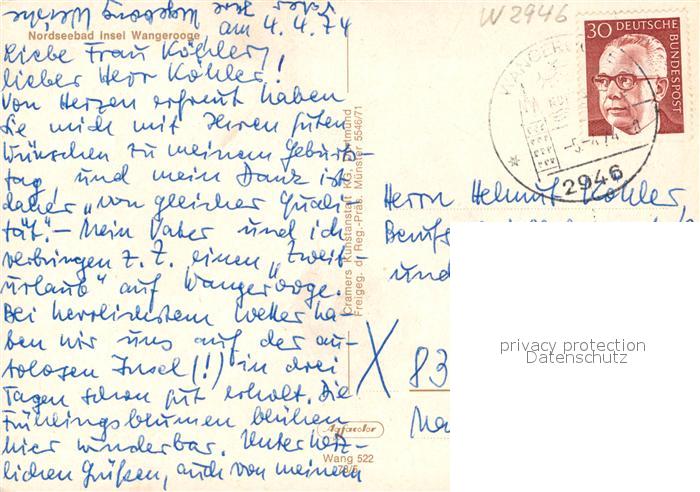 W 2946
am 4.4.74
Nordseebad Insel Wangerooge
Liebe Frau Köhler,
lieber Herr Köhler!
Von Herzen erfreut haben
Sie mich mit Ihren guten
Wünschen zu meinem Geburts-
tag, und mein Dank ist
daher „von gleicher Quali-
tät". – Mein Vater und ich
verbringen z. Z. einen „Zweit-
urlaub" auf Wangerooge.
Bei herrlichstem Wetter ha-
ben wir uns auf der au-
tolosen Insel (!) in drei
Tagen schon gut erholt. Die
Frühlingsblumen blühen
hier wunderbar. Unter herz-
lichen Grüßen, auch von meinem
Cramers Kunstanstalt KG, Dortmund
Freigeg. d. Reg.-Präs. Münster 5546/71
Agfacolor
Wang 522
30
DEUTSCHE
BUNDESPOST
2946
Herrn Helmut Köhler,
und
83
privacy protection
Datenschutz